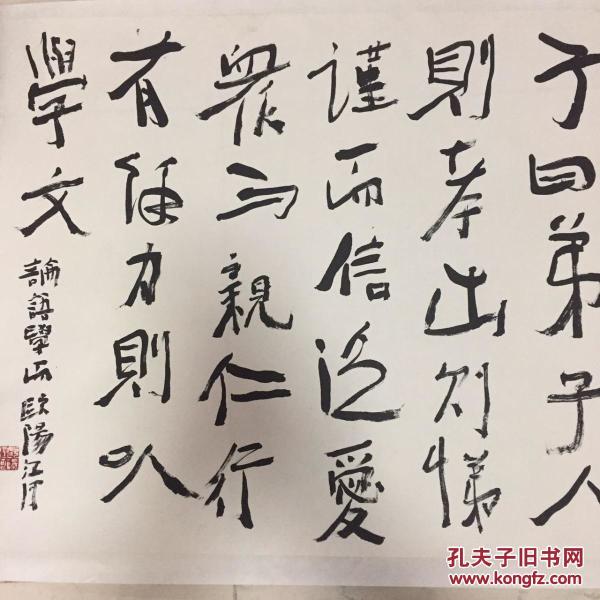 子曰弟子人
則孝出則悌
謹而信泛愛
眾而親仁行
有餘力則以
學文
論語學而歐陽江河
孔夫子旧书网
www.kongfz.com